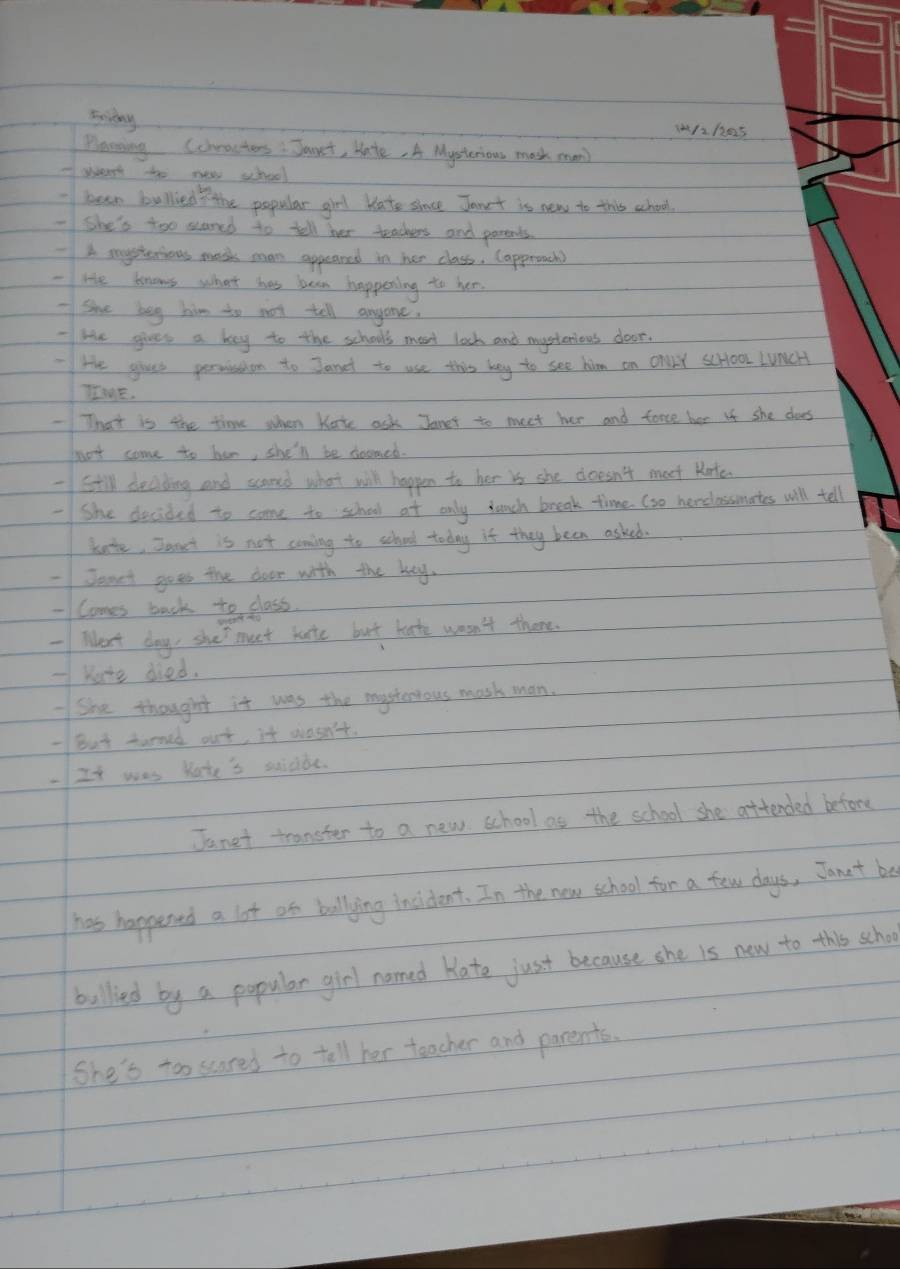 Friday
14/2/2025
Planning (chracters : Janet, Kate, A Mysterious mask man)
- Went to new school
- been bullied by the popular girl Kate since Janet is new to this school.
- She's too scared to tell her teachers and parents.
- A mysterious mask man appeared in her class. (approach)
- He knows what has been happening to her.
- She beg him to not tell anyone.
- He gives a key to the school's most lock and mysterious door.
- He gives permission to Janet to use this key to see him on ONLY SCHOOL LUNCH
TIME.
- That is the time when Kate ask Janet to meet her and force her if she does
not come to her, she'll be doomed.
- Still deciding and scared what will happen to her is she doesn't meet Kate.
- She decided to come to school at only lunch break time. (so herclassmates will tell
kate, Janet is not coming to school today if they been asked.
- Janet goes the door with the key.
- Comes back to class.
- Next day, she went to meet kate but kate wasn't there.
- Kate died.
- She thought it was the mysterious mask man.
- But turned out, it wasn't.
- It was Kate's suicide.
Janet transfer to a new school as the school she attended before
has happened a lot of bullying incident. In the new school for a few days, Janet be
bullied by a popular girl named Kate just because she is new to this school
She's too scared to tell her teacher and parents.